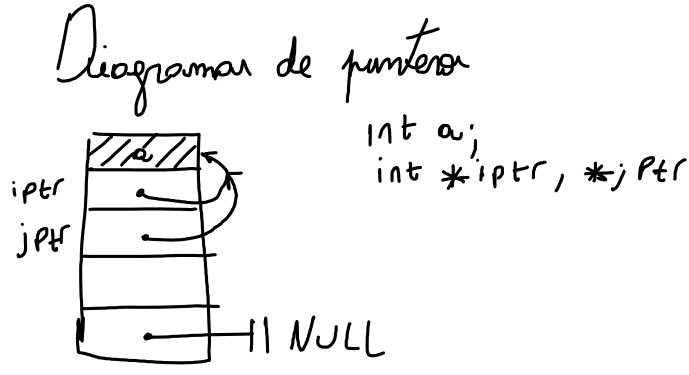 Diagramas de punteros
int a;
int *iptr, *jptr
a
iptr
jptr
NULL